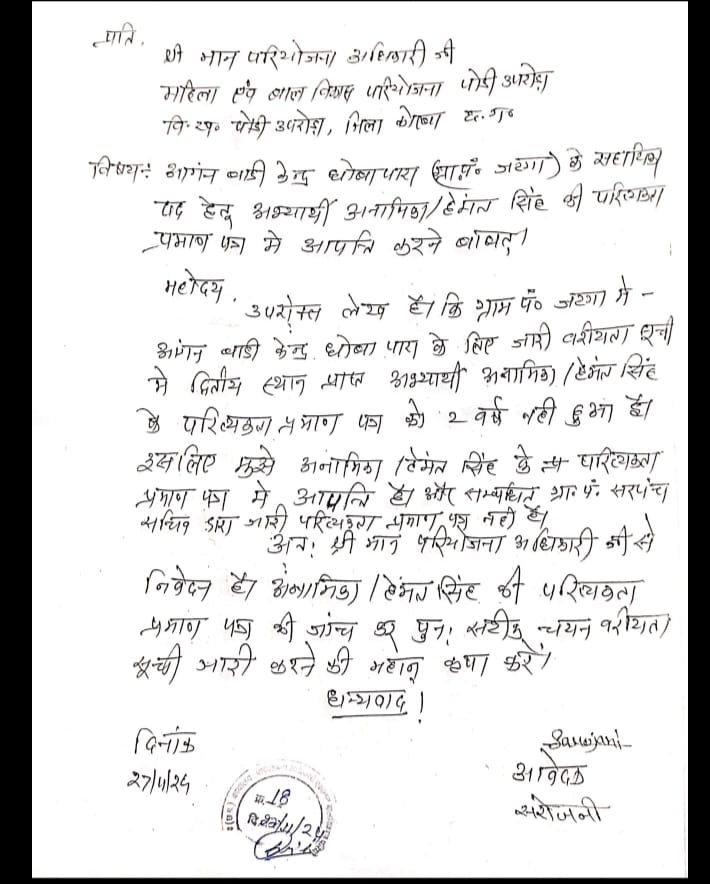 प्रति,
श्री मान परियोजना अधिकारी जी
महिला एवं बाल विकास परियोजना पोडी उपरोड़ा
वि.ख. पोडी उपरोड़ा, जिला कोरबा छ.ग.
विषय: आगंन बाडी केन्द्र धोबापारा (ग्रा.पं. जटगा) के सहायिका
पद हेतू अभ्यार्थी अनामिका/हेमंत सिंह की परित्यकता
प्रमाण पत्र मे आपत्ति करने बाबद्।
महोदय,
उपरोक्त लेख है। कि ग्राम पं० जटगा मे -
आंगन बाडी केन्द्र धोबा पारा के लिए जारी वरीयता सूची
मे द्वितीय स्थान प्राप्त अभ्यार्थी अनामिका/हेमंत सिंह
के परित्यकता प्रमाण पत्र को 2 वर्ष नही हुआ है।
इसलिए मुझे अनामिका/हेमंत सिंह के परित्यकता
प्रमाण पत्र मे आपत्ति है। और सम्बंधित ग्रा. पं. सरपंच
सचिव द्वारा जारी परित्यकता प्रमाण पत्र नही है।
अत: श्री मान परियोजना अधिकारी जी से
निवेदन है। अनामिका/हेमंत सिंह की परित्यकता
प्रमाण पत्र की जांच कर पुन: सटीक चयन वरीयता
सूची जारी करने की महान् कृपा करें।
धन्यवाद!
दिनांक
Sarojani
27/11/25
आवेदक
सरोजनी
क्र. 18